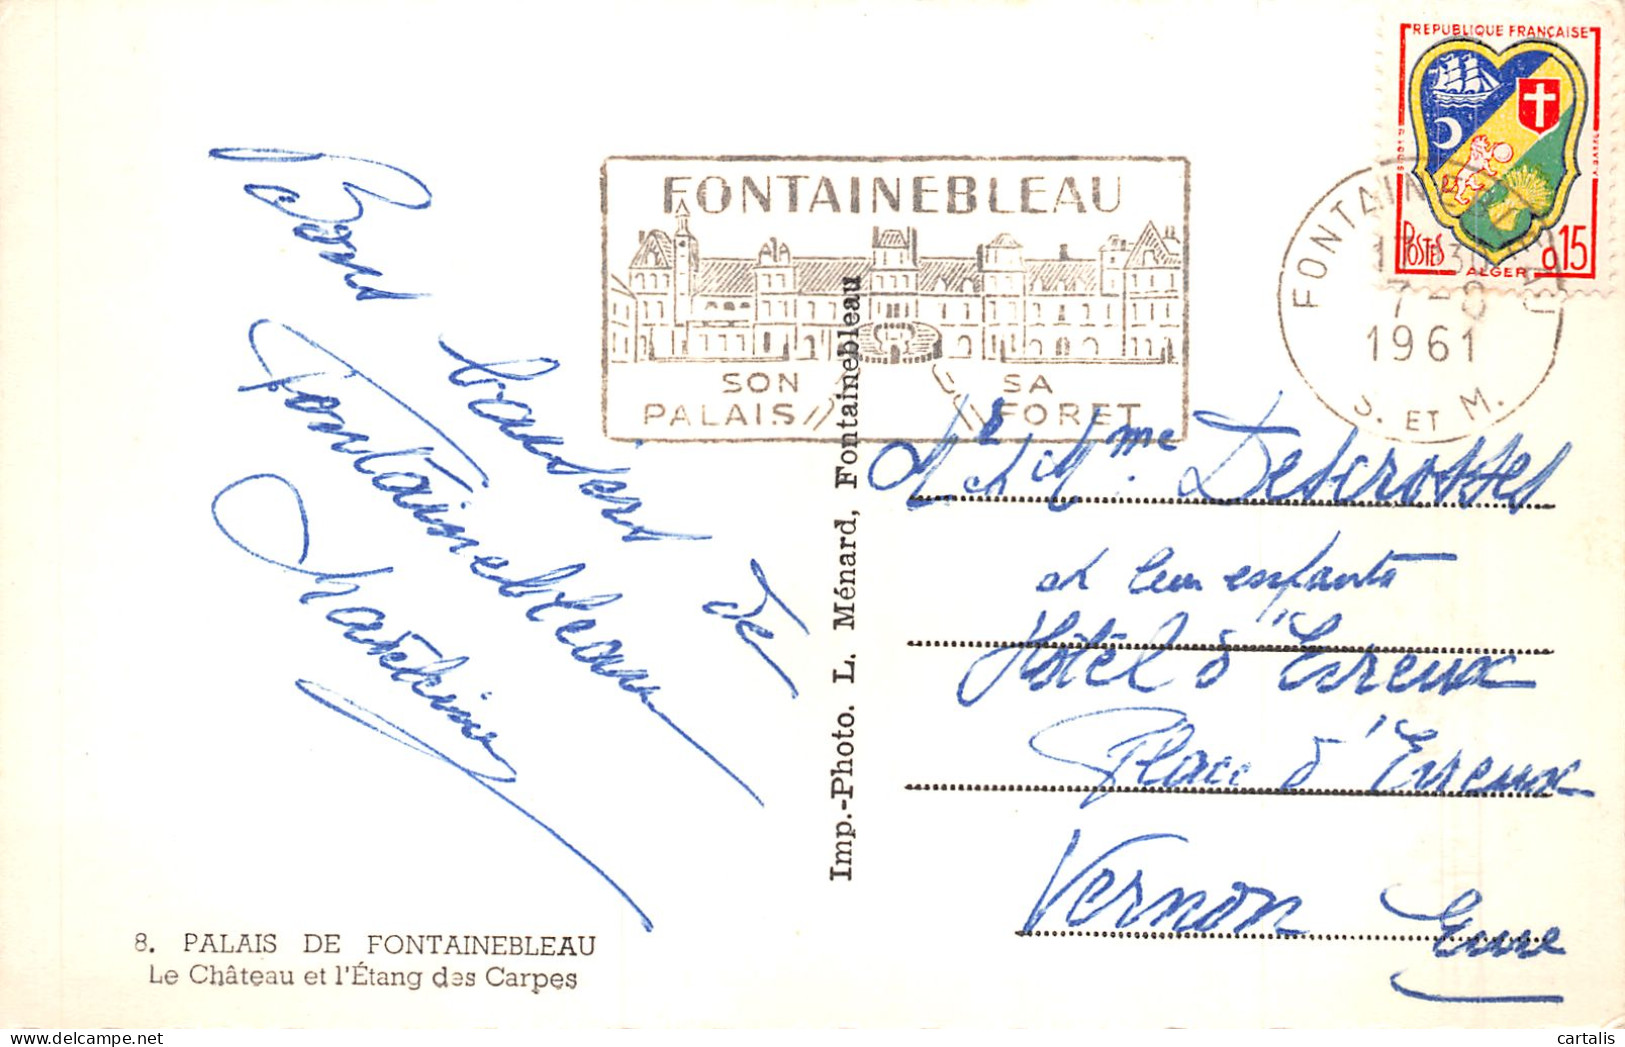 REPUBLIQUE FRANÇAISE
POSTES
ALGER
0,15
FONTAINEBLEAU
SON PALAIS
SA FORET
FONTAINEBLEAU
1961
S. ET M.
Bons baisers de
Fontainebleau
Imp.-Photo. L. Ménard, Fontainebleau
M et Mme Descrosses
et leurs enfants
Hôtel d'Evreux
Place d'Evreux
Vernon Eure
8. PALAIS DE FONTAINEBLEAU
Le Château et l'Étang des Carpes
cartalis